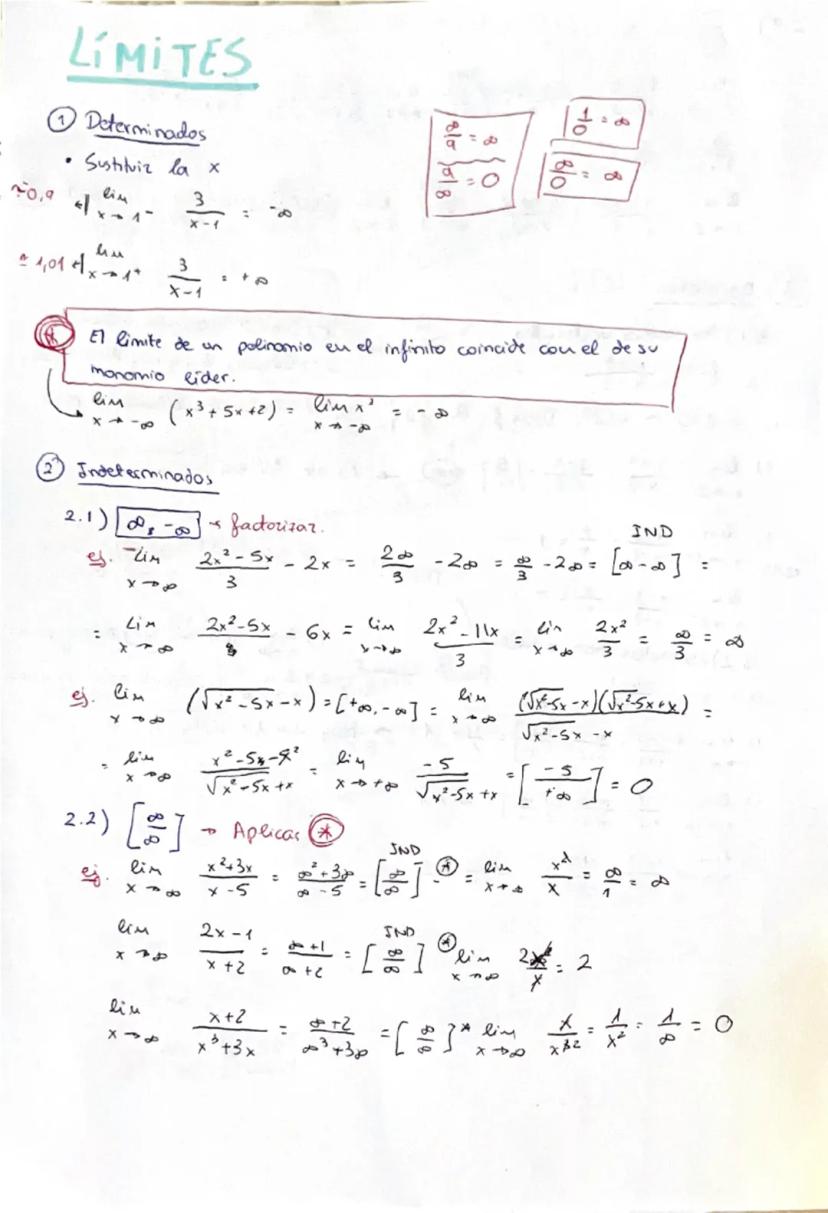 LÍMITES
① Determinados
∞/a = ∞
a/∞ = 0
1/0 = ∞
∞/0 = ∞
• Sustituir la x
≈0,9 lim x→1⁻ 3/(x-1) = -∞
≈1,01 lim x→1⁺ 3/(x-1) = +∞
(*) El límite de un polinomio en el infinito coincide con el de su
monomio líder.
lim x→-∞ (x³+5x+2) = lim x→-∞ x³ = -∞
② Indeterminados
2.1) ∞, -∞ → factorizar.
ej. lim x→∞ (2x²-5x)/3 - 2x = 2∞/3 - 2∞ = ∞/3 - 2∞ = [∞-∞] IND =
= lim x→∞ (2x²-5x)/3 - 6x = lim x→∞ (2x²-11x)/3 = lim x→∞ 2x²/3 = ∞/3 = ∞
ej. lim x→∞ (√(x²-5x) - x) = [+∞,-∞] = lim x→∞ (√(x²-5x) - x)(√(x²-5x) + x)/(√(x²-5x) - x) =
= lim x→∞ (x²-5x-x²)/(√(x²-5x) + x) = lim x→+∞ -5/(√(x²-5x) + x) = [-5/+∞] = 0
2.2) [∞/∞] → Aplicar (*)
ej. lim x→∞ (x²+3x)/(x-5) = (∞²+3∞)/(∞-5) = [∞/∞] IND (*) = lim x→∞ x²/x = ∞/1 = ∞
lim x→∞ (2x-1)/(x+2) = (∞+1)/(∞+2) = [∞/∞] IND (*) lim x→∞ 2x/x = 2
lim x→∞ (x+2)/(x³+3x) = (∞+2)/(∞³+3∞) = [∞/∞] * lim x→∞ x/x³² = 1/x² = 1/∞ = 0